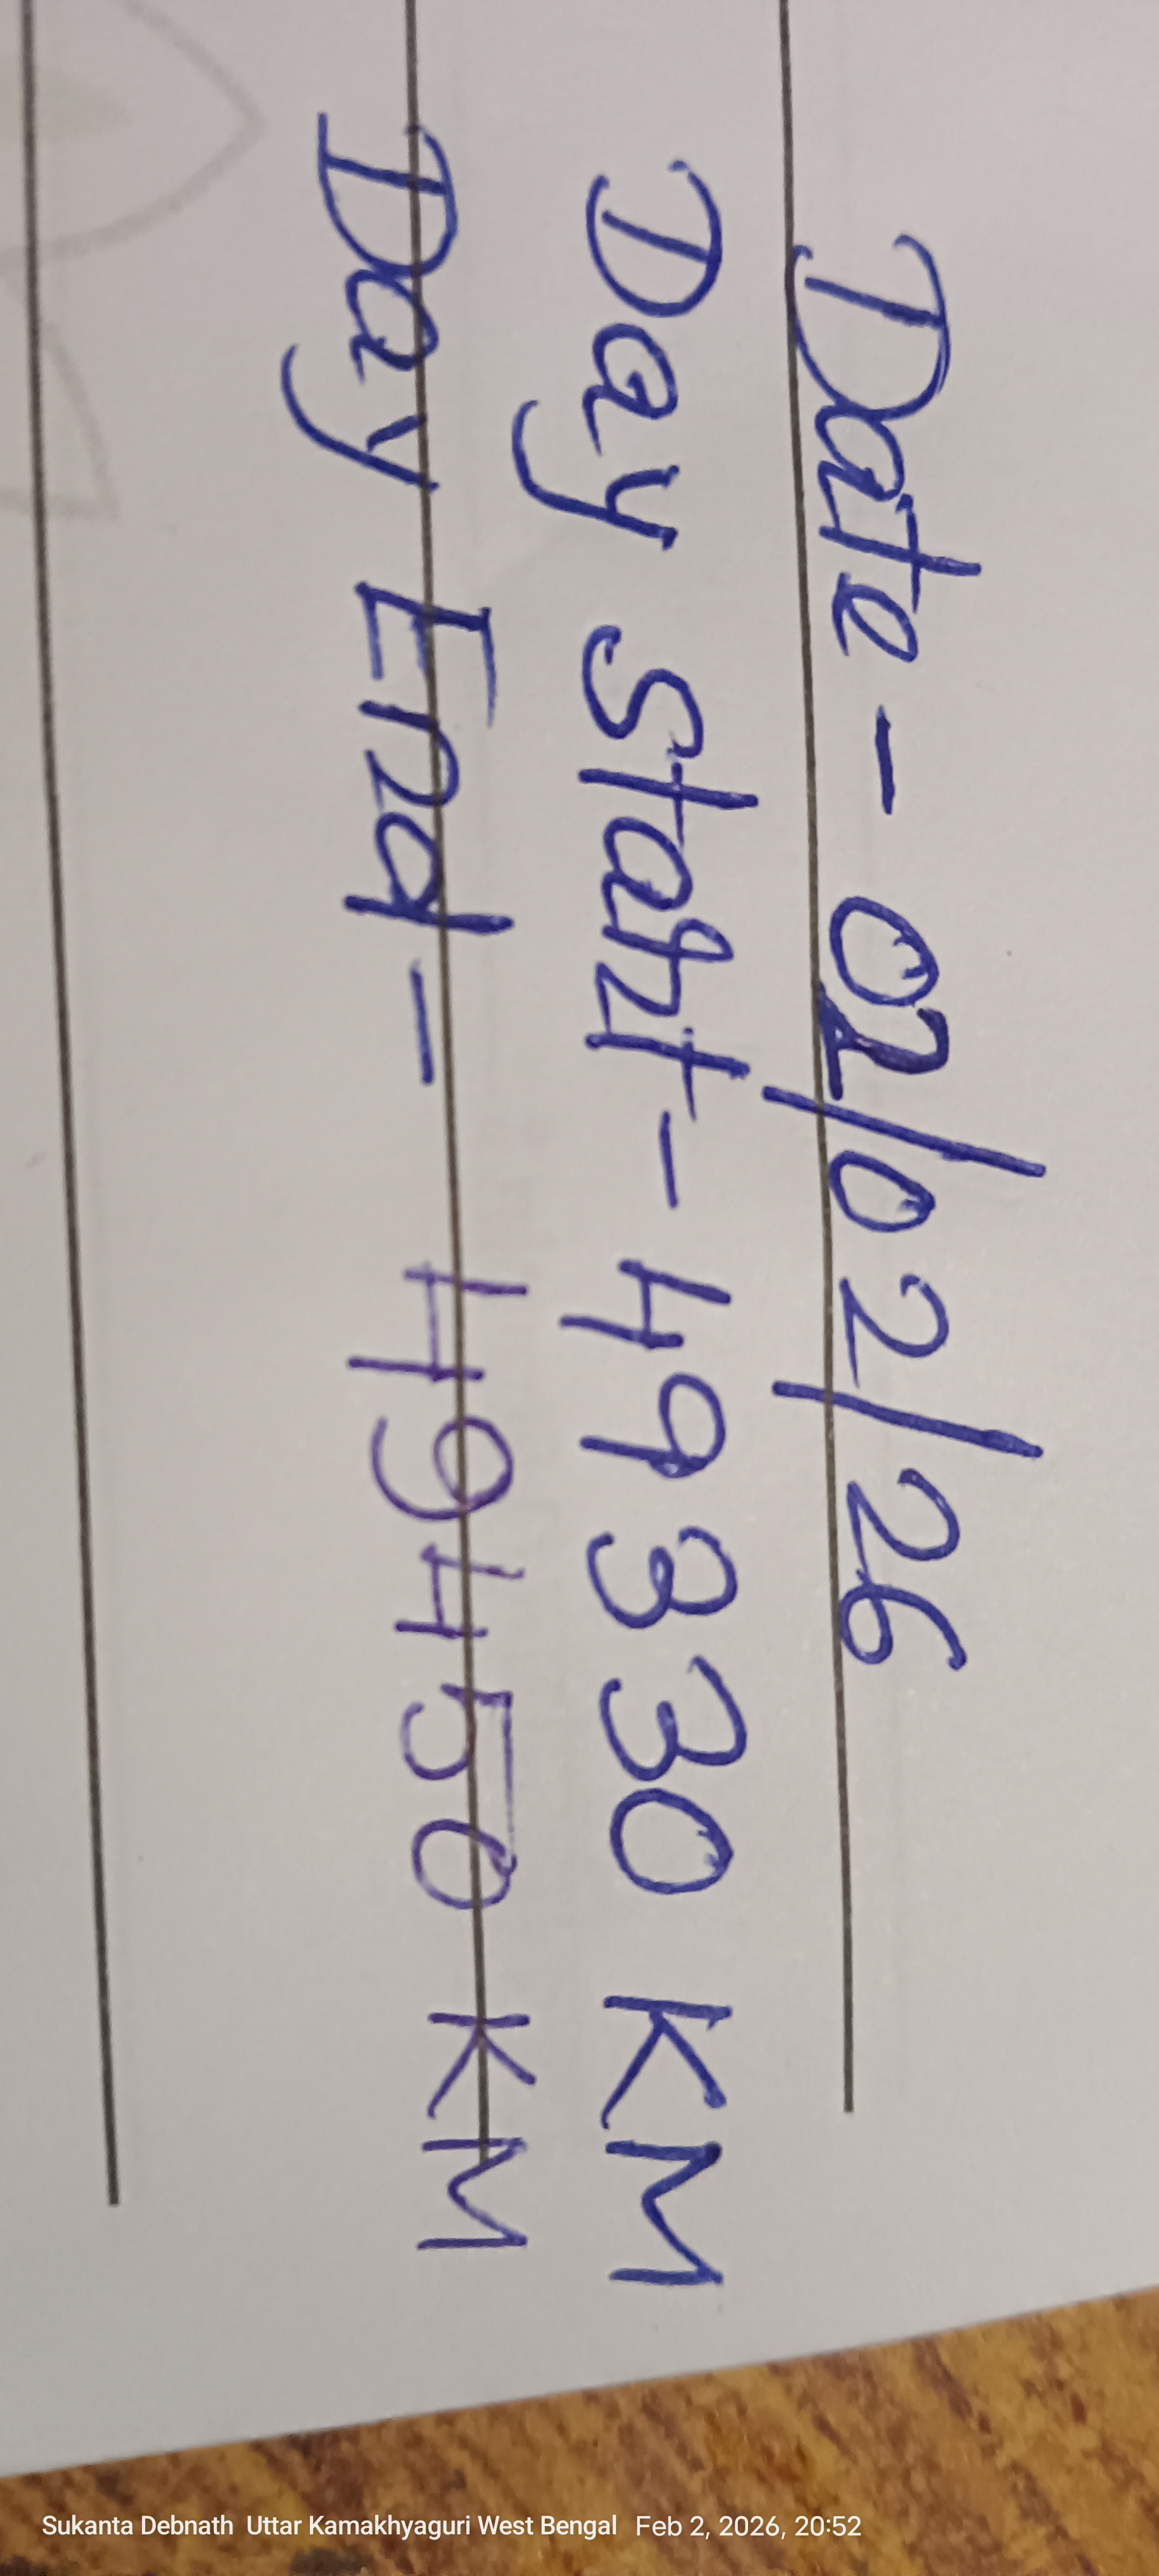 Date - 02/02/26
Day Start - 49330 KM
Day End - 49450 KM
Sukanta Debnath Uttar Kamakhyaguri West Bengal Feb 2, 2026, 20:52